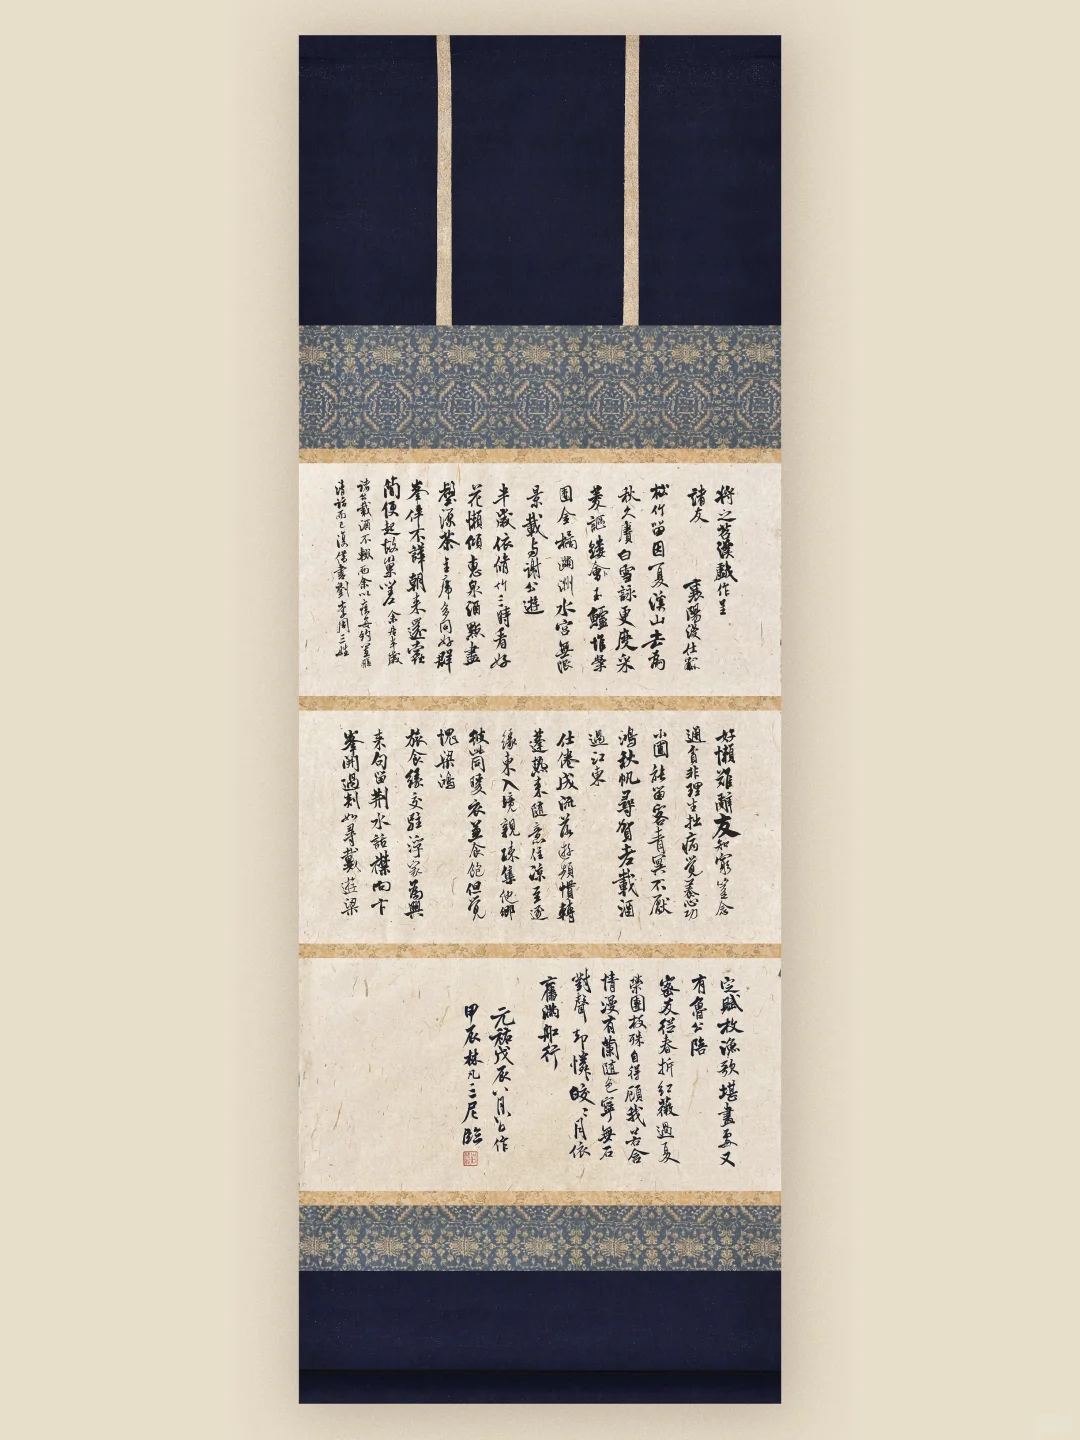 將之苕溪戲作呈
諸友 襄陽漫仕黻
松竹留因夏溪山去為
秋久賡白雪詠更度采
菱謳縷會玉鱸堆案
團金橘滿洲水宮無限
景載與謝公遊
半歲依脩竹三時看好
花懶傾惠泉酒點盡
壑源茶主席多同好群
峯伴不譁朝來還蠹
簡便起故巢嗟余居半歲
諸公載酒不輟而余以疾每約置膳
清話而已復借書劉李周三姓
好懶難辭友知窮豈念
通貧非理生拙病覺養心功
小圃能留客青冥不厭
鴻秋帆尋賀老載酒
過江東
仕倦成流落遊頻慣轉
蓬熱來隨意住涼至逐
緣東入境親疎集他鄉
彼此同暖衣並食飽但覺
愧梁鴻
旅食緣交駐浮家為興
來句留荆水話襟向卞
峯開過剡如尋戴遊梁
定賦枚漁歌堪畫處又
有魯公陪
密友從春拆紅薇過夏
榮團枝殊自得顧我若含
情漫有蘭隨色寧無石
對聲却憐皎〻月依
舊滿船行
元祐戊辰八月八日作
甲辰林凡三尼臨